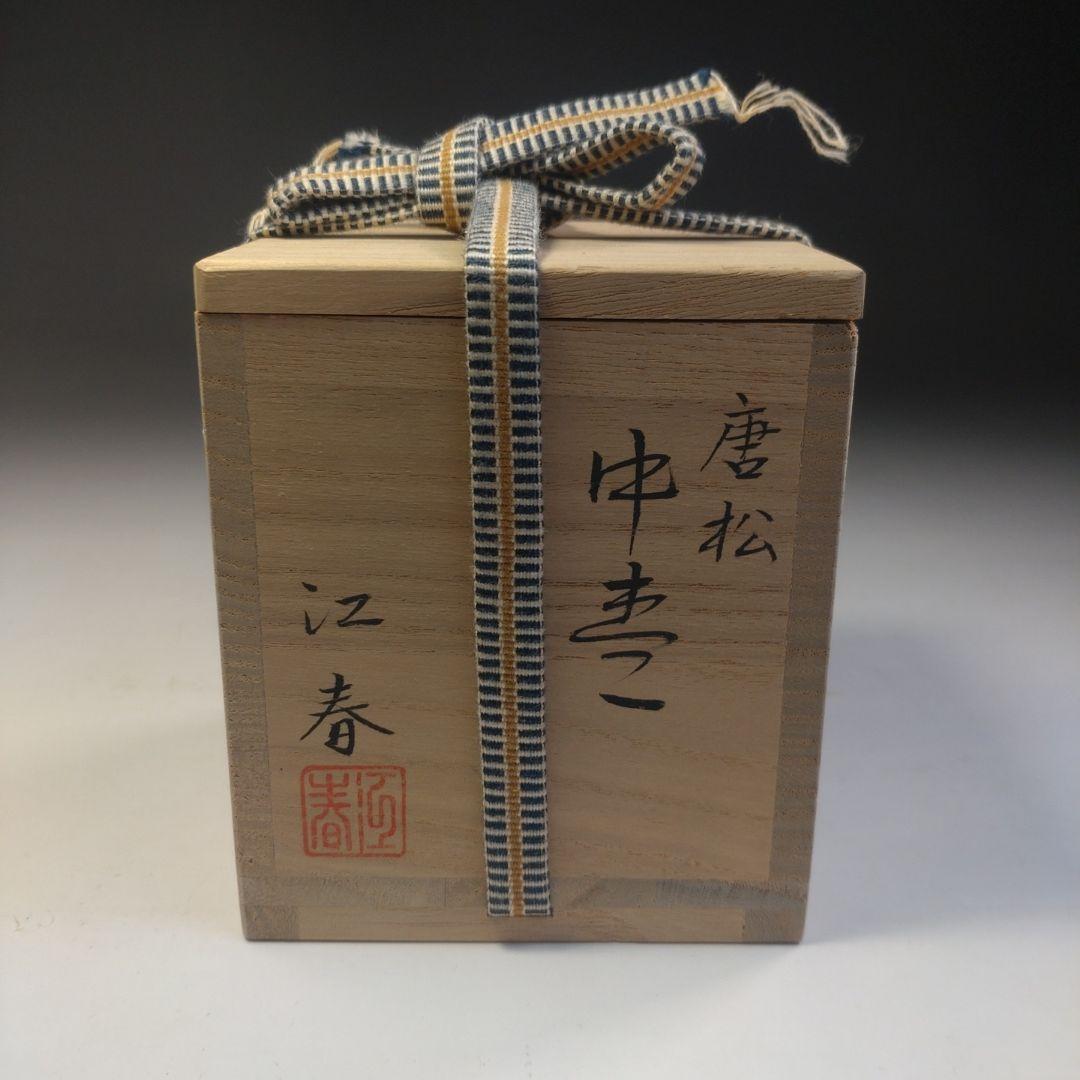 唐松
中棗
江春
江春